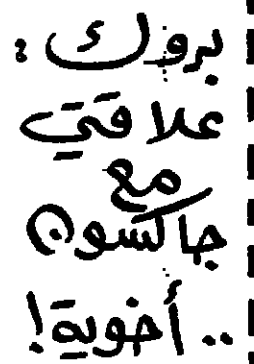 بروك :
علاقتي
مع
جاكسون
.. أخوية!